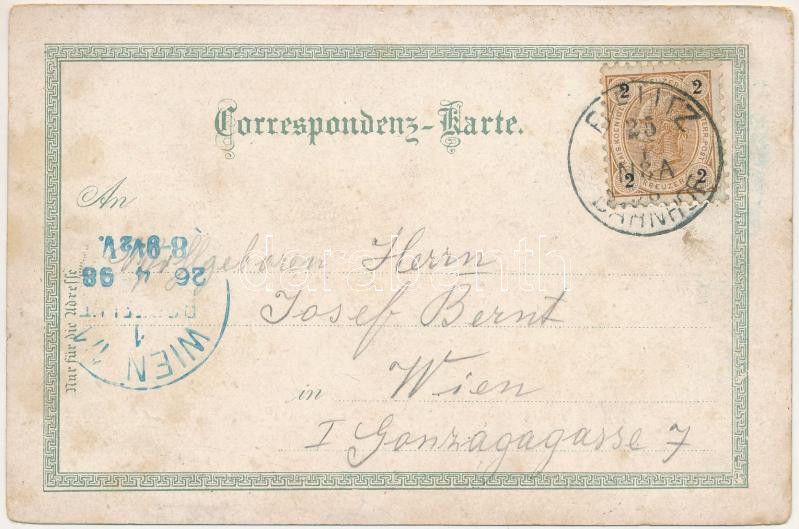 Correspondenz-Karte.
2 2
2 2
KREUZER
BIELITZ
25
BAHNHOF
An
Wohlgeboren Herrn
Josef Bernt
in Wien
I Gonzagagasse 7
Nur für die Adresse
WIEN 1/1
1
BESTELLT
26 4 98
8-9½V.
darabanth